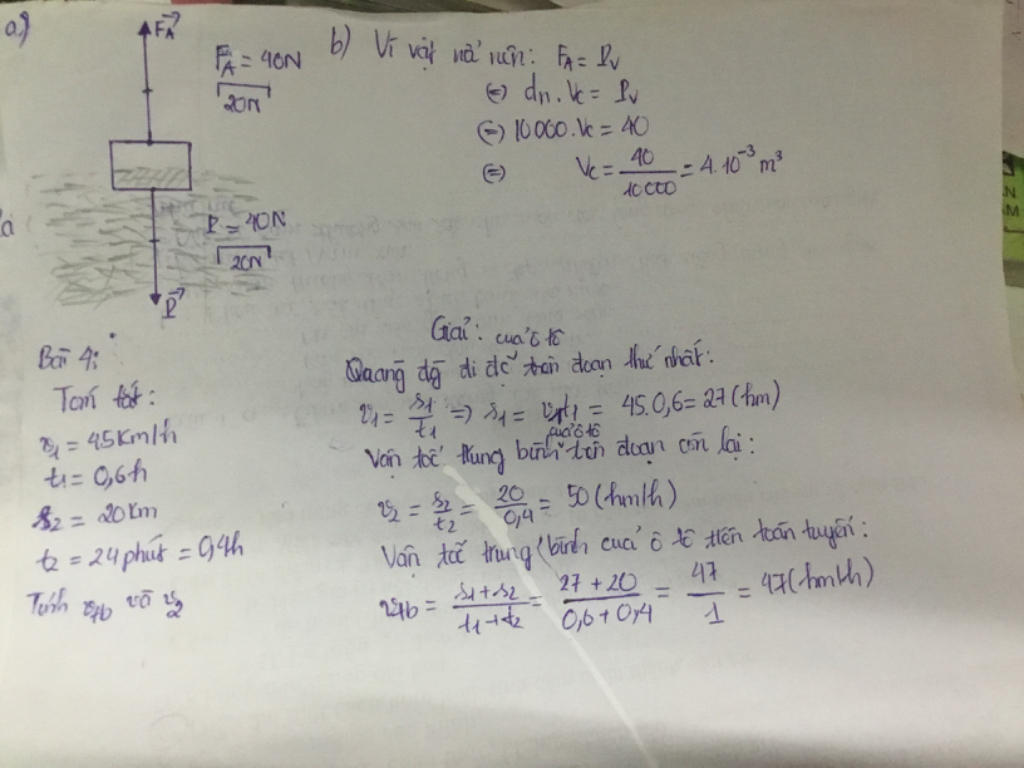 a)
F_A→
F_A = 40N
20N
P = 40N
20N
P→
b) Vì vật nổi nên: F_A = P_V
(=) dn. Vc = P_V
(=) 10000. Vc = 40
(=) Vc = 40/10000 = 4.10⁻³ m³
Bài 4:
Tóm tắt:
v₁ = 45Km/h
t₁ = 0,6h
s₂ = 20Km
t₂ = 24 phút = 0,4h
Tính vtb và v₂
Giải:
Quãng đg đi đc của ô tô trên đoạn thứ nhất:
v₁ = s₁/t₁ => s₁ = v₁.t₁ = 45.0,6 = 27 (km)
Vận tốc trung bình của ô tô trên đoạn còn lại:
v₂ = s₂/t₂ = 20/0,4 = 50 (km/h)
Vận tốc trung bình của ô tô trên toàn tuyến:
vtb = s₁+s₂/t₁+t₂ = 27+20/0,6+0,4 = 47/1 = 47 (km/h)